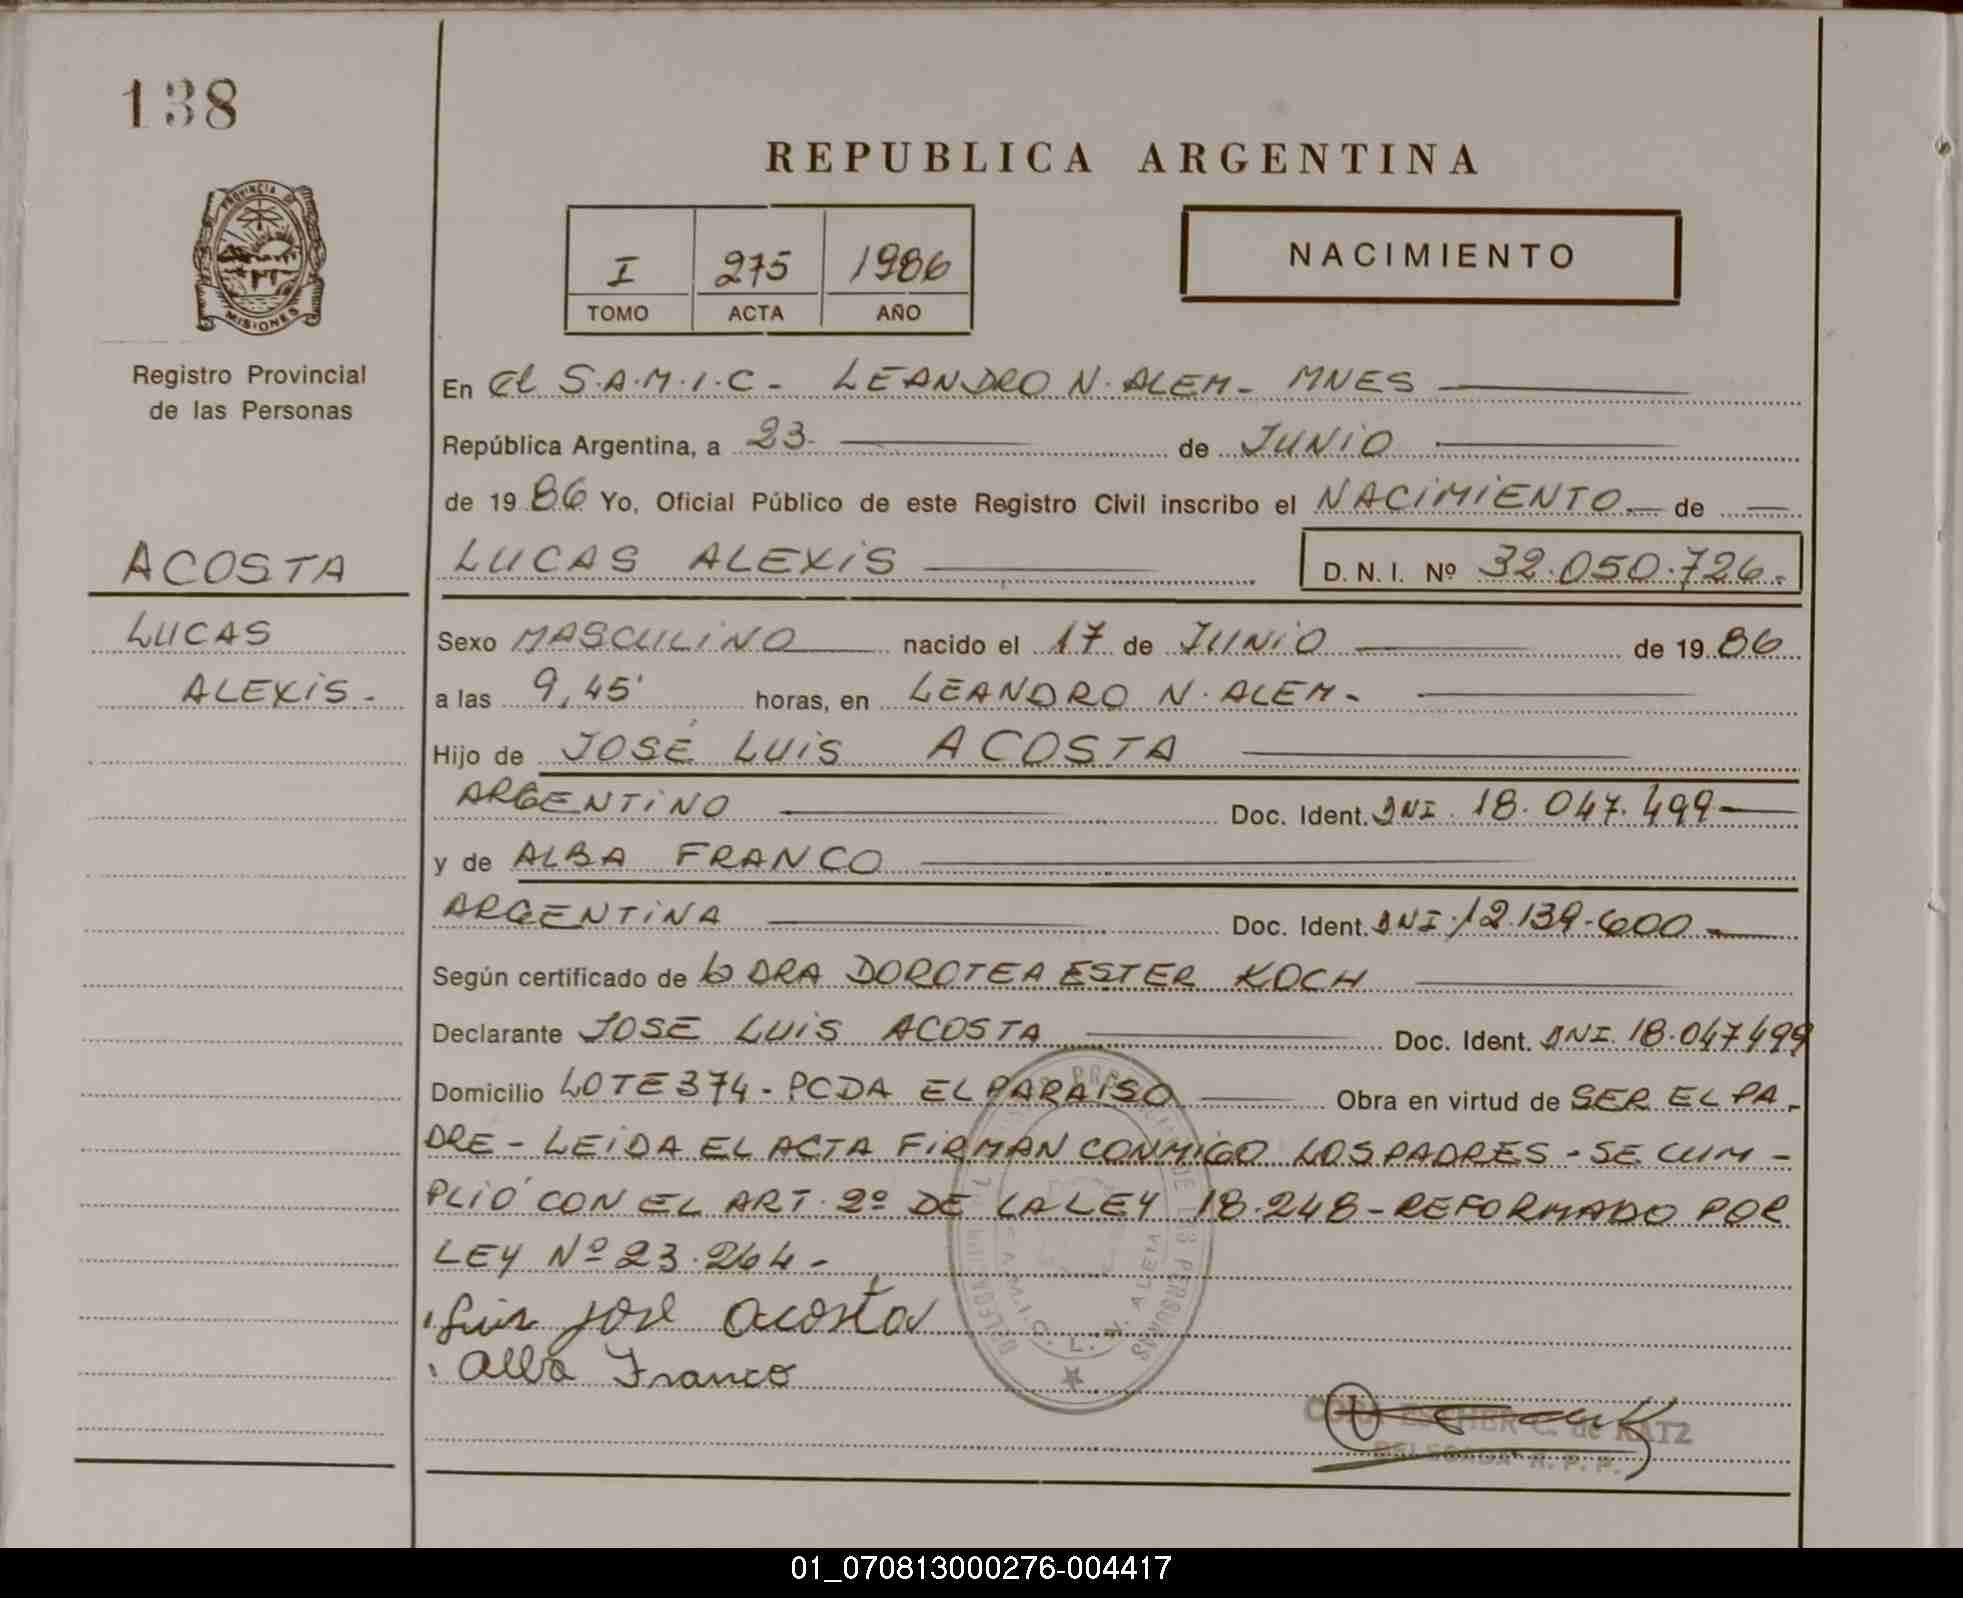 138
REPUBLICA ARGENTINA
PROVINCIA DE
MISIONES
I 275 1986
TOMO ACTA AÑO
NACIMIENTO
Registro Provincial
de las Personas
En el S.A.M.I.C - LEANDRO N. ALEM - MNES
República Argentina, a 23 de JUNIO
de 1986 Yo, Oficial Público de este Registro Civil inscribo el NACIMIENTO de
LUCAS ALEXIS D. N. I. Nº 32.050.726.
ACOSTA
LUCAS
ALEXIS -
Sexo MASCULINO nacido el 17 de JUNIO de 1986
a las 9,45' horas, en LEANDRO N. ALEM -
Hijo de JOSÉ LUIS ACOSTA
ARGENTINO Doc. Ident. DNI. 18.047.499
y de ALBA FRANCO
ARGENTINA Doc. Ident. DNI. 12.139.600
Según certificado de la DRA DOROTEA ESTER KOCH
Declarante JOSE LUIS ACOSTA Doc. Ident. DNI. 18.047499
Domicilio LOTE 374 - PCDA EL PARAISO Obra en virtud de SER EL PA-
DRE - LEIDA EL ACTA FIRMAN CONMIGO LOS PADRES - SE CUM -
PLIÓ CON EL ART. 2º DE LA LEY 18.248 - REFORMADO POR
LEY Nº 23.264 -
Luis José Acosta
Alba Franco
S.A.M.I.C. L. N. ALEM
ESTHER C. de KATZ
DELEGADA R. P. P.
01_070813000276-004417